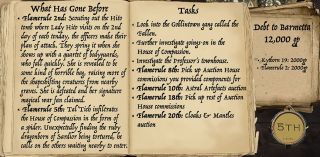 What Has Gone Before
• Flamerule 2nd: Scouting out the Hito
tomb where Lady Hito visits on the 2nd
day of each tenday, the officers make their
plan of attack. They spring it when she
shows up with a quartet of bodyguards,
who full quickly. She is revealed to be
some kind of horrible hag, raising more of
the shapeshifting creatures from nearby
graves. She is defeated and her signature
magical war fan claimed.
• Flamerule 5th: Tal Tich infiltrates
the House of Compassion in the form of
a spider. Unexpectedly finding the ruby
dragonborn of Sardior being tortured, he
calls on the others waiting nearby to enter.
Tasks
• Look into the Gollintown gang called the
Fallen.
• Further investigate goings-on in the
House of Compassion.
• Investigate the Professor's townhouse.
• Flamerule 8th: Pick up Auction House
commissions you provided components for
• Flamerule 10th: Astral Artefacts auction
• Flamerule 18th: Pick up rest of Auction
House commissions
• Flamerule 20th: Cloaks & Mantles
auction
Debt to Barmetta
12,000 gp
- Kythorn 19: 2000gp
- Flamerule 2: 2000gp
5TH